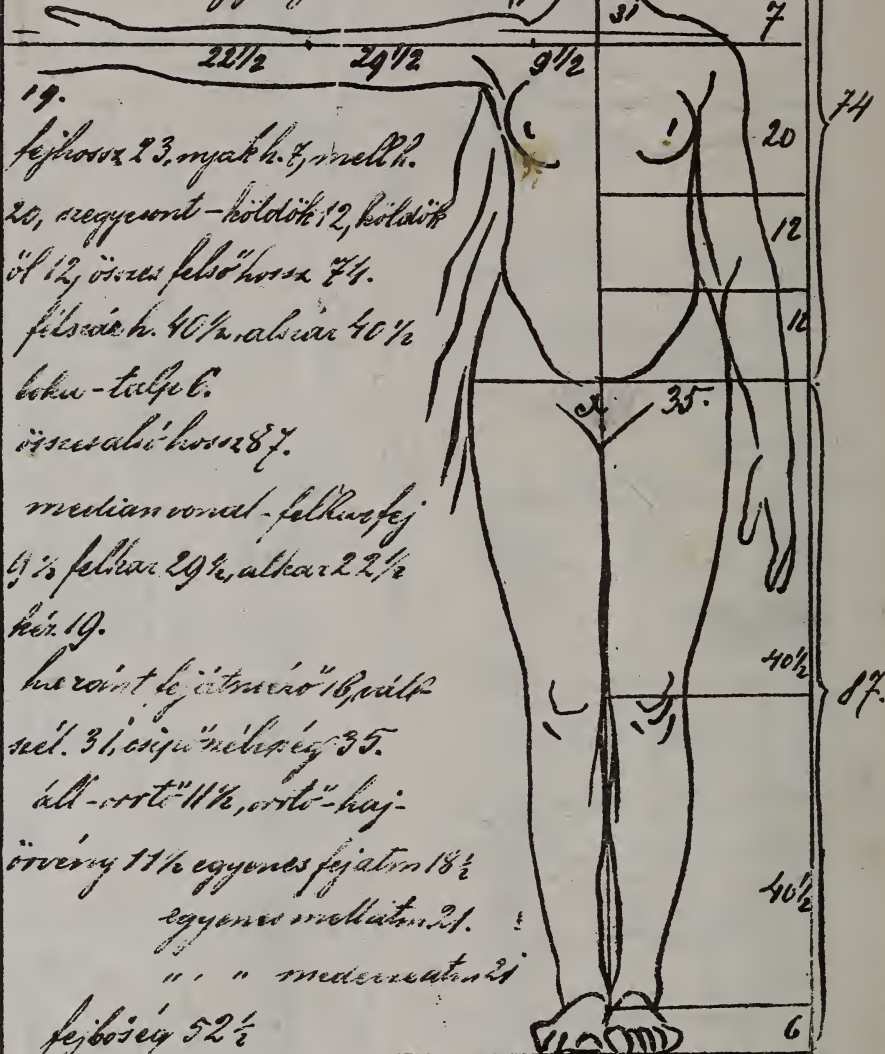 31
7
22½ 29½ 9½
19.
74
fejhossz 23, nyak h. 7, mell h.
20
20, szegycsont - köldök 12, köldök
12
öl 12, összes felső hossz 74.
12
felszár h. 40½, alszár 40½
boka - talp 6.
35.
összes alsó hossz 87.
median vonal - felkar fej
9½ felkar 29½, alkar 22½
kéz 19.
40½
haránt fejátmérő 16, váll
87.
szél. 31, csipőszélesség 35.
áll - orrtő 11½, orrtő - haj-
örvény 11½ egyenes fejátm 18½
40½
egyenes mellátm 21.
" . " medenceátm 21
fejbőség 52½
6